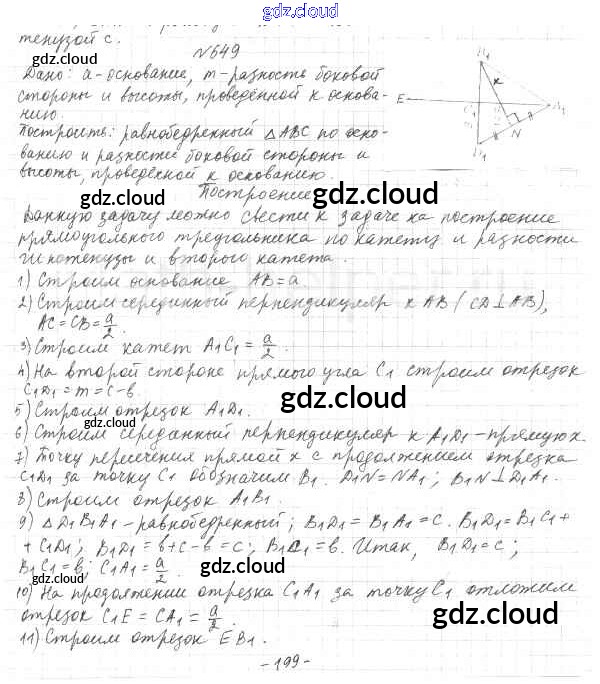 gdz.cloud
тенузой с.
gdz.cloud
№649
gdz.cloud
Дано: a-основание, m-разность боковой
стороны и высоты, проведённой к основа-
нию.
Построить: равнобедренный △ABC по осно-
ванию и разности боковой стороны и
высоты, проведённой к основанию.
E
N
x
gdz.cloud
gdz.cloud
Построение
gdz.cloud
Данную задачу можно свести к задаче на построение
прямоугольного треугольника по катету и разности
гипотенузы и второго катета.
gdz.cloud
1) Строим основание AB=a.
2) Строим серединный перпендикуляр к AB (CD⊥AB),
AC=CB=a/2.
3) Строим катет A1C1=a/2.
4) На второй стороне прямого угла C1 строим отрезок
C1D1=m=c-b.
gdz.cloud
gdz.cloud
5) Строим отрезок A1D1.
6) Строим серединный перпендикуляр к A1D1-прямую x.
7) Точку пересечения прямой x с продолжением отрезка
C1D1 за точку C1 обозначим B1. D1N=NA1; B1N⊥D1A1.
gdz.cloud
gdz.cloud
8) Строим отрезок A1B1.
9) △D1B1A1-равнобедренный; B1D1=B1A1=c. B1D1=B1C1+
+C1D1; B1D1=b+c-b=c; B1C1=b. Итак, B1D1=c;
B1C1=b; C1A1=a/2.
gdz.cloud
gdz.cloud
10) На продолжении отрезка C1A1 за точку C1 отложим
отрезок C1E=CA1=a/2.
gdz.cloud
11) Строим отрезок EB1.
gdz.cloud
-199-